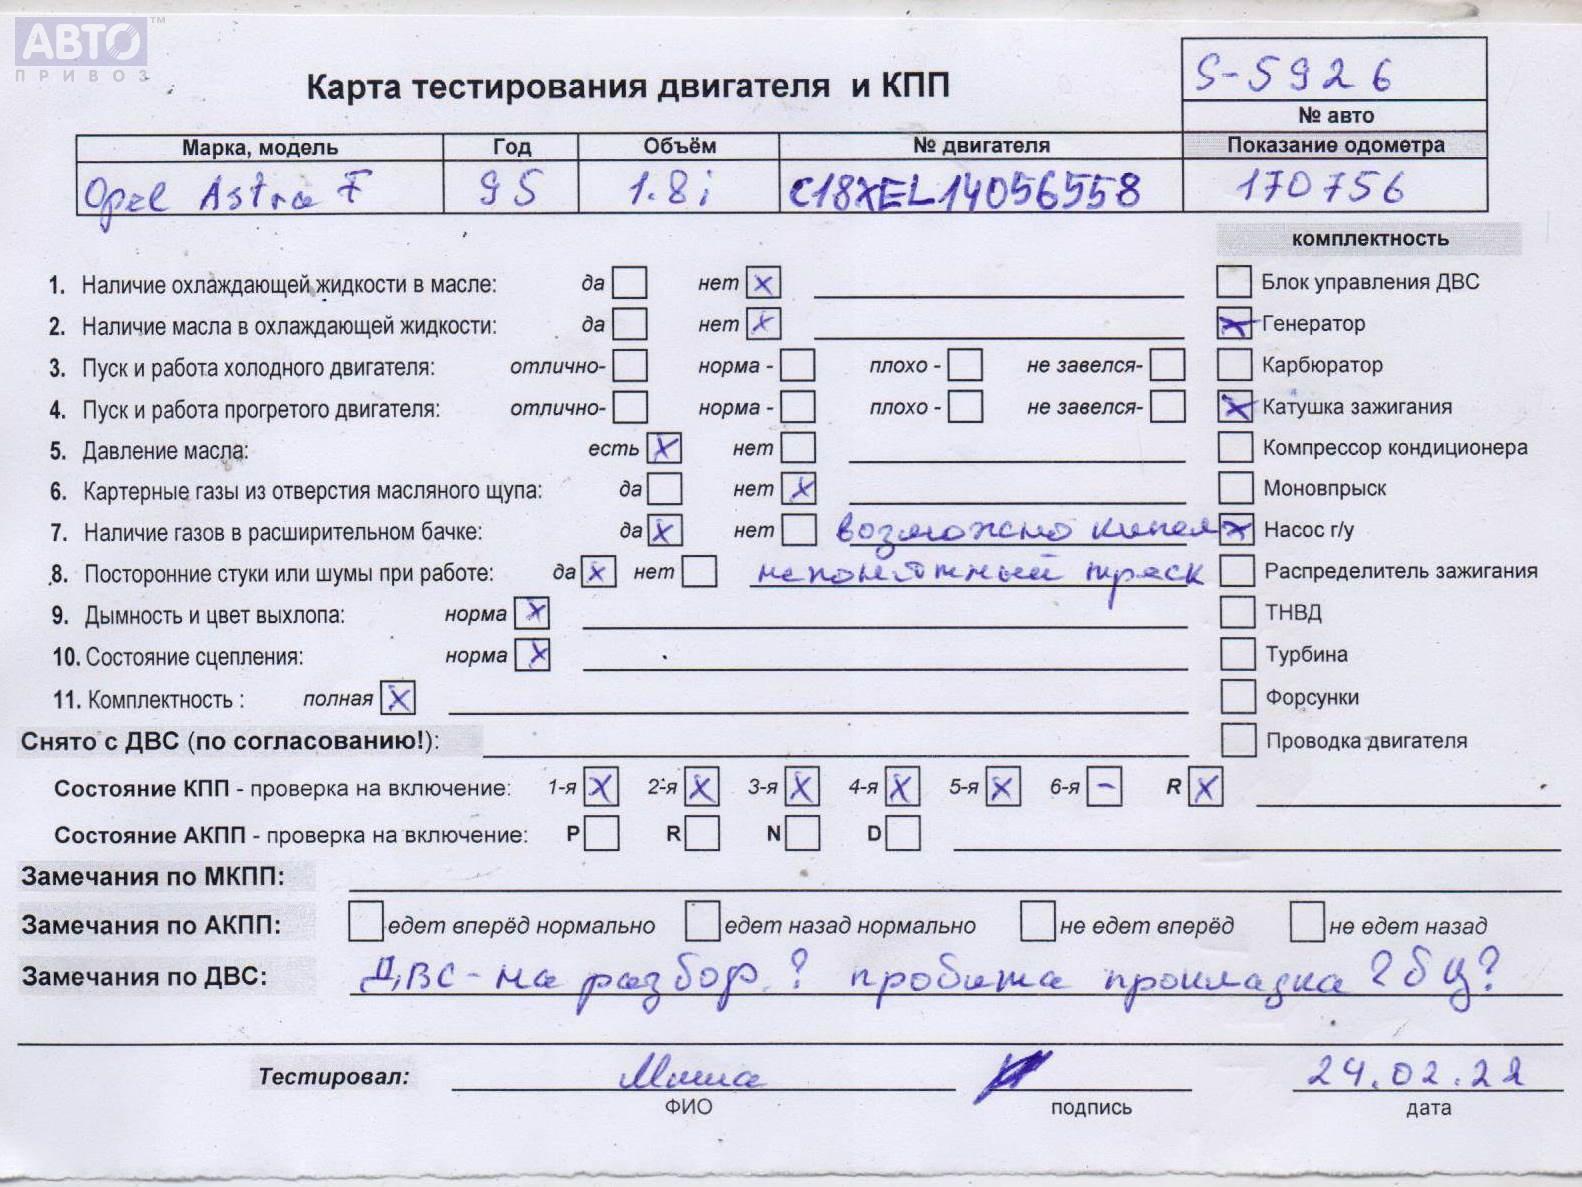 АВТО™
ПРИВОЗ
S-5926
Карта тестирования двигателя и КПП
№ авто
Марка, модель Год Объём № двигателя Показание одометра
Opel Astra F 95 1.8i C18XEL14056558 170756
комплектность
1. Наличие охлаждающей жидкости в масле: да нет x Блок управления ДВС
2. Наличие масла в охлаждающей жидкости: да нет x x Генератор
3. Пуск и работа холодного двигателя: отлично- норма - плохо - не завелся- Карбюратор
4. Пуск и работа прогретого двигателя: отлично- норма - плохо - не завелся- x Катушка зажигания
5. Давление масла: есть x нет Компрессор кондиционера
6. Картерные газы из отверстия масляного щупа: да нет x Моновпрыск
7. Наличие газов в расширительном бачке: да x нет возможно кипел x Насос г/у
8. Посторонние стуки или шумы при работе: да x нет непонятный треск Распределитель зажигания
9. Дымность и цвет выхлопа: норма x ТНВД
10. Состояние сцепления: норма x Турбина
11. Комплектность : полная x Форсунки
Снято с ДВС (по согласованию!): Проводка двигателя
Состояние КПП - проверка на включение: 1-я x 2-я x 3-я x 4-я x 5-я x 6-я - R x
Состояние АКПП - проверка на включение: P R N D
Замечания по МКПП:
Замечания по АКПП: едет вперёд нормально едет назад нормально не едет вперёд не едет назад
Замечания по ДВС: ДВС - на разбор.? пробита прокладка ГБЦ?
Тестировал: Миша 24.02.22
ФИО подпись дата